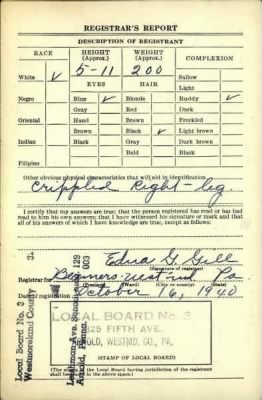 REGISTRAR'S REPORT
DESCRIPTION OF REGISTRANT
RACE HEIGHT (Approx.) WEIGHT (Approx.) COMPLEXION
5-11 200 Sallow
White ✓ EYES HAIR Light
Negro Blue ✓ Blonde Ruddy ✓
Gray Red Dark
Oriental Hazel Brown Freckled
Brown Black ✓ Light brown
Indian Black Gray Dark brown
Bald Black
Filipino
Other obvious physical characteristics that will aid in identification
Crippled Right-leg.
I certify that my answers are true; that the person registered has read or has had
read to him his own answers; that I have witnessed his signature or mark and that
all of his answers of which I have knowledge are true, except as follows:
Edna G. Gill
(Signature of registrar)
Registrar for Pa.
(Precinct) (City or county) (State)
Date of registration October 16, 1940
LOCAL BOARD No. 3
FIFTH AVE.
ARNOLD, WESTMD. CO., PA.
(STAMP OF LOCAL BOARD)
(The stamp of the Local Board having jurisdiction of the registrant
shall be placed in the above space.)
Local Board No. 3 31
Westmoreland County 129
003
Arnold, Penna.